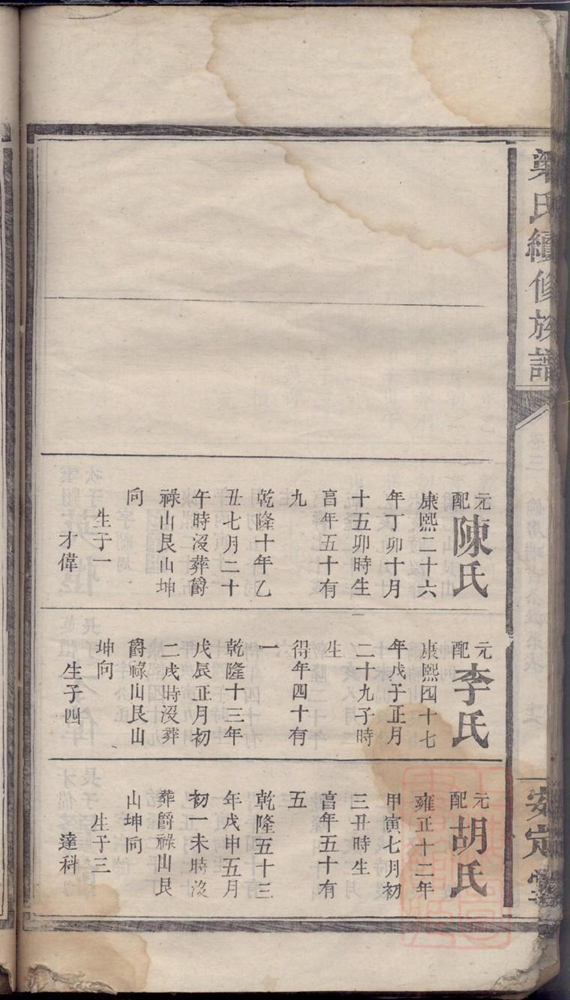 梁氏續修族譜
安定堂
元配陳氏
康熙二十六
年丁卯十月
十五卯時生
亯年五十有
九
乾隆十年乙
丑七月二十
午時沒葬爵
祿山艮山坤
向
生子一
才偉
元配李氏
康熙四十七
年戊子正月
二十九子時
生
得年四十有
一
乾隆十三年
戊辰正月初
二戌時沒葬
爵祿山艮山
坤向
生子四
元配胡氏
雍正十二年
甲寅七月初
三丑時生
亯年五十有
五
乾隆五十三
年戊申五月
初一未時沒
葬爵祿山艮
山坤向
生子三
達科